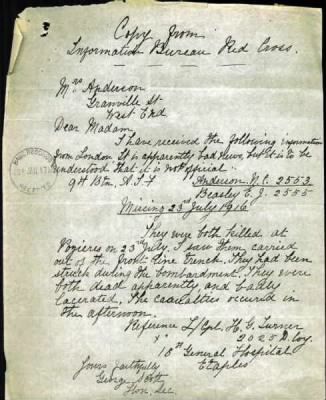 Copy from
Information Bureau Red Cross.
Mrs Anderson
Granville St
West End
Dear Madam
I have received the following information
from London It is apparently bad News but it is to be
understood that it is not official.
9th Btn A.I.F Anderson. N. C. 2553
Beasley E. J. 2555
Missing 23rd July 1916
They were both killed at
Pozieres on 23rd July. I saw them carried
out of the front line trench. They had been
struck during the bombardment. They were
both dead apparently and badly
lacerated. The casualties occured in
the afternoon.
Reference L/Cpl. H. G. Turner
2025 D. Coy.
18th General Hospital
Etaples
Yours faithfully
George
Hon. Sec.